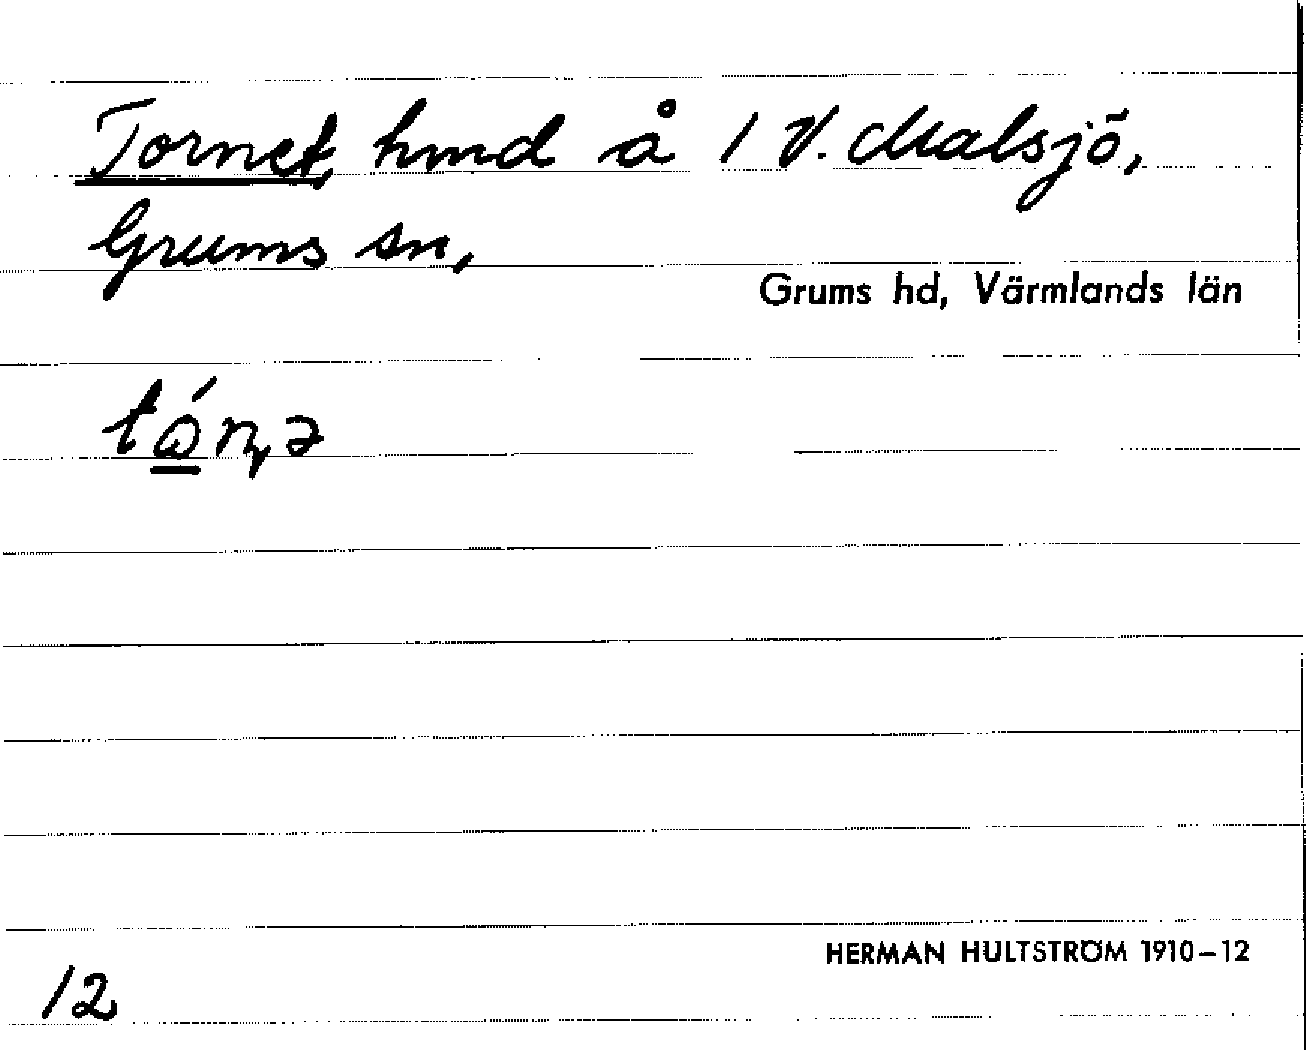 Tornet, hmd å 1 V. Malsjö,
Grums sn,
Grums hd, Värmlands län
tǫ́ɳə
HERMAN HULTSTRÖM 1910–12
12